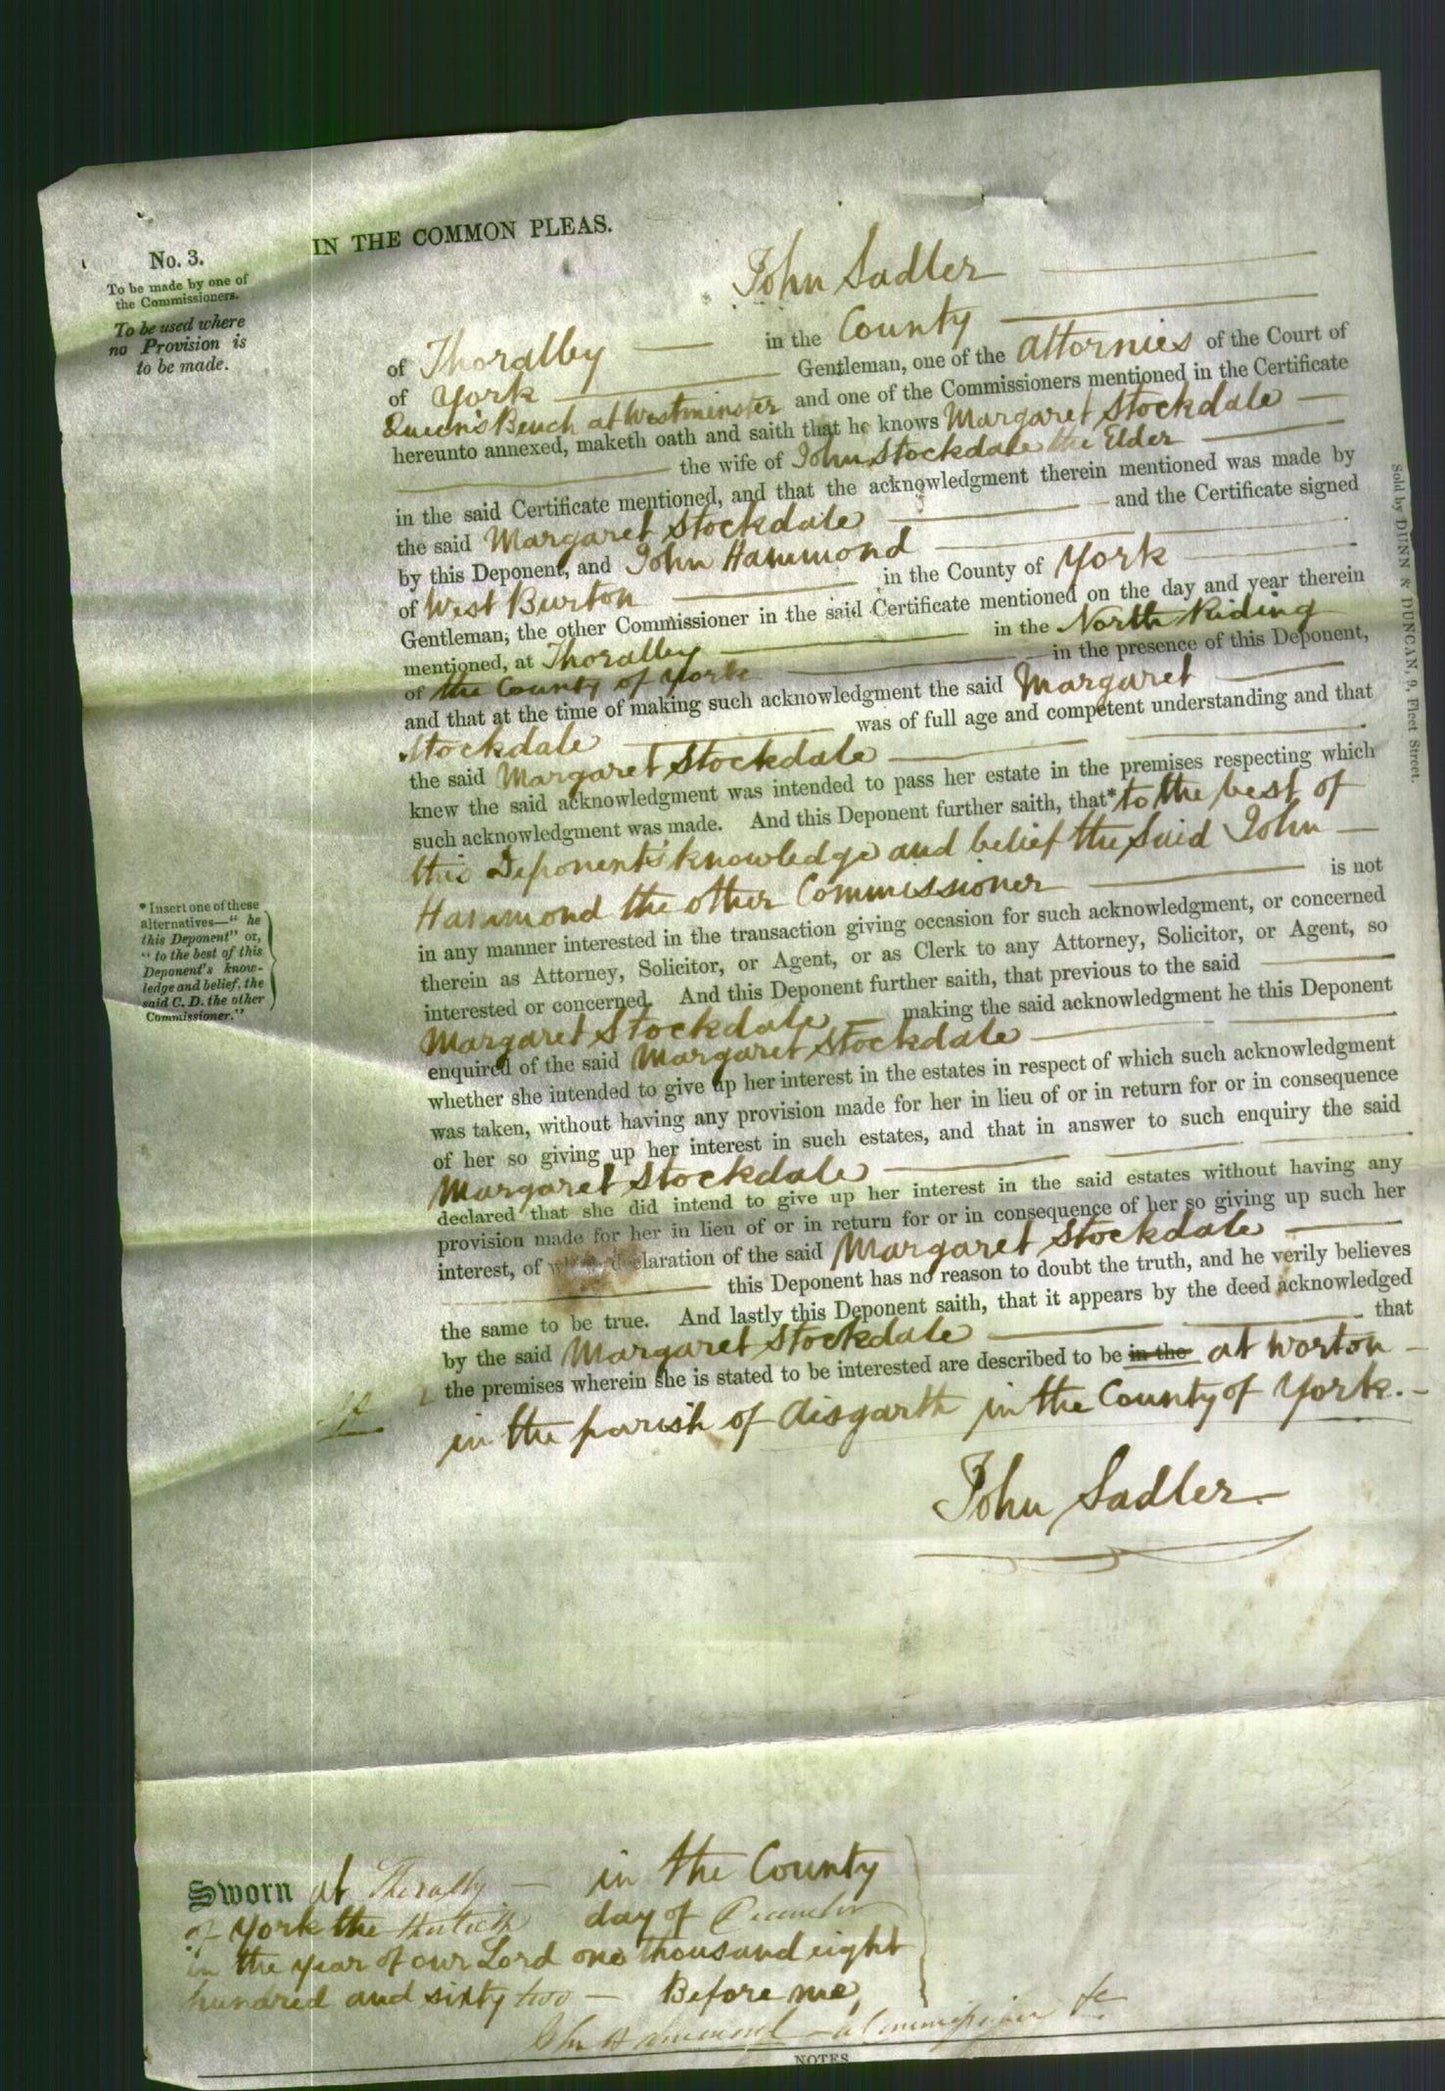 No. 3.
To be made by one of
the Commissioners.
To be used where
no Provision is
to be made.
IN THE COMMON PLEAS.
John Sadler
of Thoralby in the County
of York Gentleman, one of the attornies of the Court of
Queen's Bench at Westminster and one of the Commissioners mentioned in the Certificate
hereunto annexed, maketh oath and saith that he knows Margaret Stockdale
the wife of John Stockdale the Elder
in the said Certificate mentioned, and that the acknowledgment therein mentioned was made by
the said Margaret Stockdale and the Certificate signed
by this Deponent, and John Hammond
of West Burton in the County of York
Gentleman, the other Commissioner in the said Certificate mentioned on the day and year therein
mentioned, at Thoralby in the North Riding
of the County of York in the presence of this Deponent,
and that at the time of making such acknowledgment the said Margaret
Stockdale was of full age and competent understanding and that
the said Margaret Stockdale
knew the said acknowledgment was intended to pass her estate in the premises respecting which
such acknowledgment was made. And this Deponent further saith, that* to the best of
this Deponent's knowledge and belief the said John
Hammond the other Commissioner is not
in any manner interested in the transaction giving occasion for such acknowledgment, or concerned
therein as Attorney, Solicitor, or Agent, or as Clerk to any Attorney, Solicitor, or Agent, so
interested or concerned. And this Deponent further saith, that previous to the said
Margaret Stockdale making the said acknowledgment he this Deponent
enquired of the said Margaret Stockdale
whether she intended to give up her interest in the estates in respect of which such acknowledgment
was taken, without having any provision made for her in lieu of or in return for or in consequence
of her so giving up her interest in such estates, and that in answer to such enquiry the said
Margaret Stockdale
declared that she did intend to give up her interest in the said estates without having any
provision made for her in lieu of or in return for or in consequence of her so giving up such her
interest, of which declaration of the said Margaret Stockdale
this Deponent has no reason to doubt the truth, and he verily believes
the same to be true. And lastly this Deponent saith, that it appears by the deed acknowledged
by the said Margaret Stockdale that
the premises wherein she is stated to be interested are described to be in the at Worton
in the parish of Aisgarth in the County of York.
* Insert one of these
alternatives—"he
this Deponent" or,
"to the best of this
Deponent's know-
ledge and belief, the
said C. D. the other
Commissioner."
Sold by DUNN & DUNCAN, 9, Fleet Street.
John Sadler
Sworn at Thoralby in the County
of York the thirtieth day of December
in the year of our Lord one thousand eight
hundred and sixty two Before me,
John Hammond a Commissioner &c
NOTES